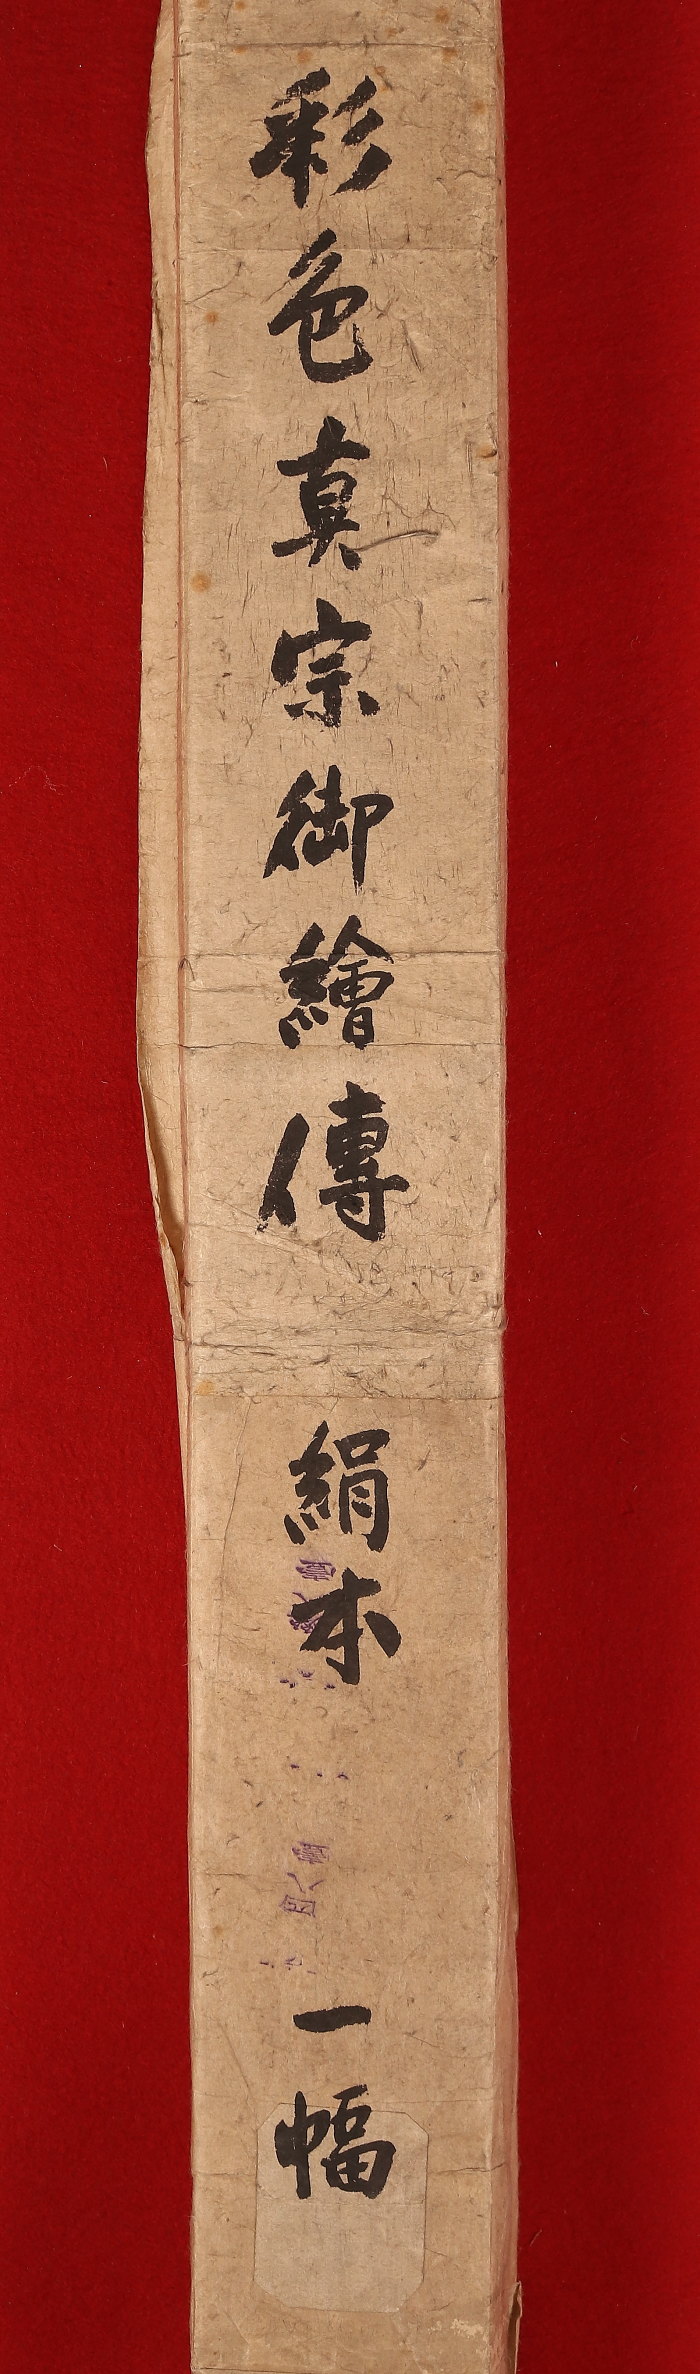 彩色真宗御繪傳 絹本 一幅